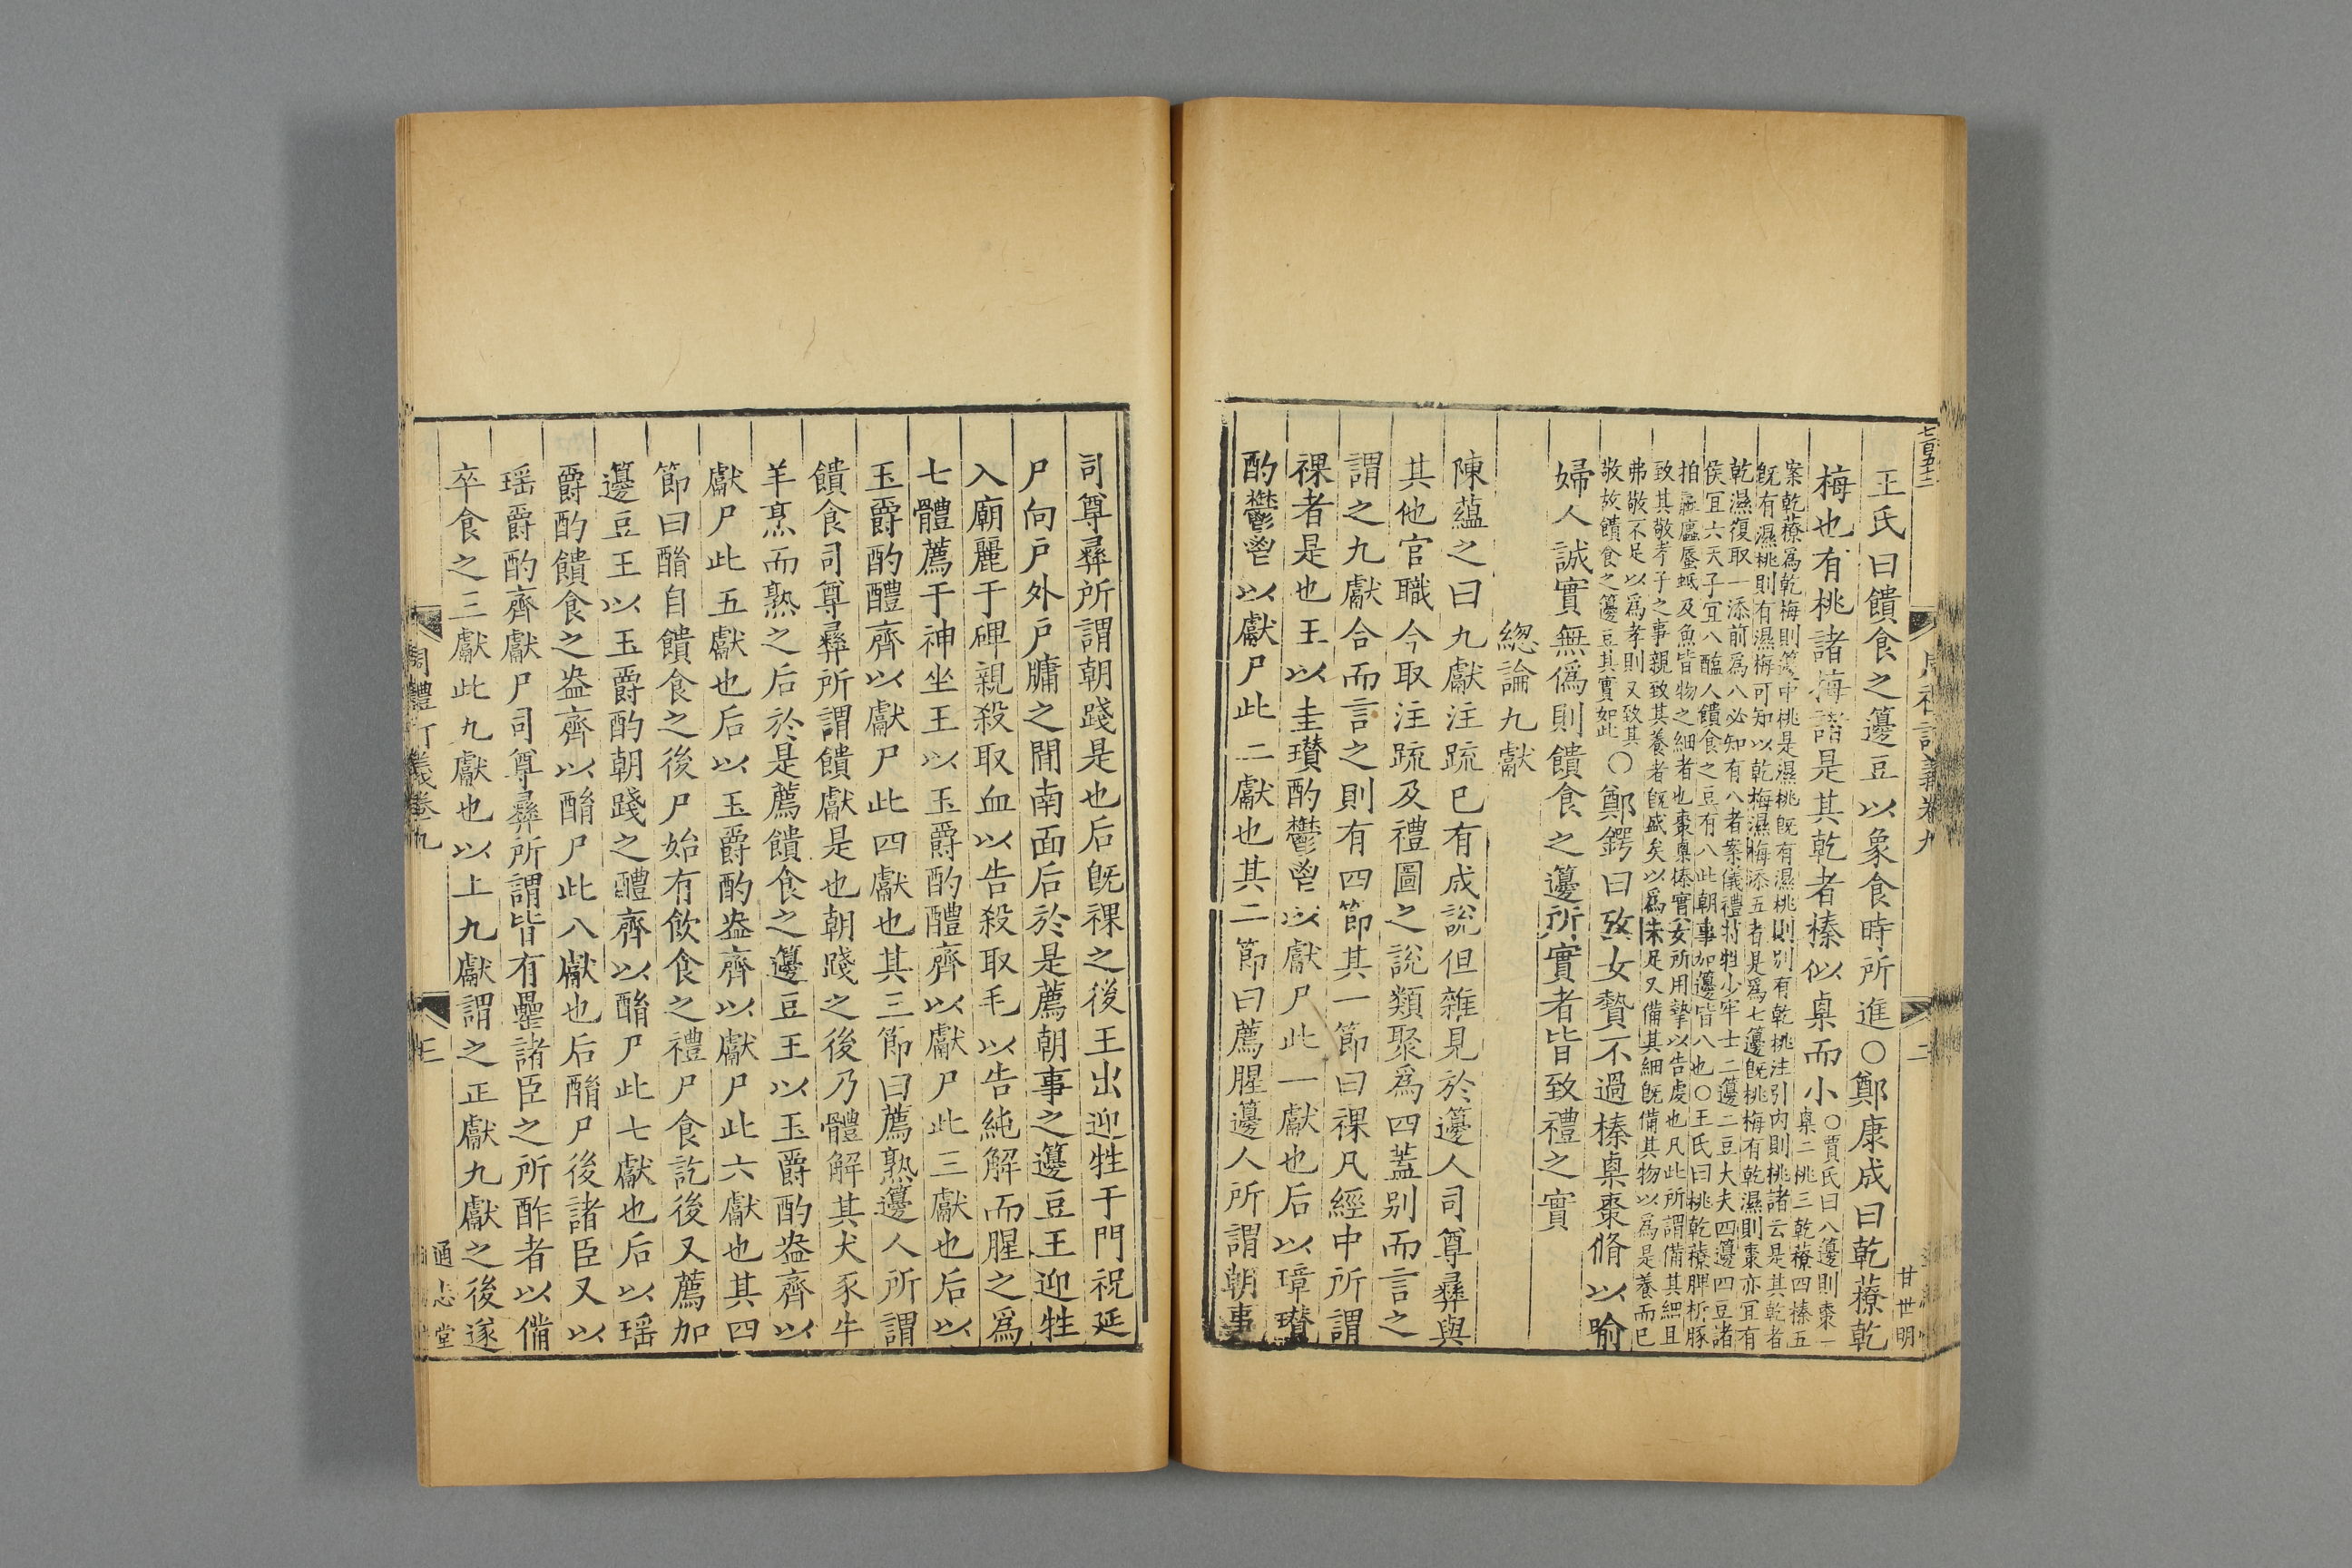 王氏曰饋食之籩豆以象食時所進〇鄭康成曰乾䕩乾
梅也有桃諸梅諸是其乾者榛似㮚而小
〇賈氏曰八籩則棗一
㮚二桃三乾䕩四榛五
案乾䕩爲乾梅則籩中桃是濕桃旣有濕桃則别有乾桃注引内則桃諸云是其乾者
旣有濕桃則有濕梅可知以乾梅濕梅添五者是爲七籩旣桃梅有乾濕則棗亦宜有
乾濕復取一添前爲八必知有八者案儀禮特牲少牢士二籩二豆大夫四籩四豆諸
侯宜六天子宜八醢人饋食之豆有八此朝事加籩皆八也〇王氏曰桃乾䕩脾析豚
拍蠃蠯蜃蚳及魚皆物之細者也棗㮚榛實女所用摯以告虔也凡此所謂備其細且
致其敬孝子之事親致其養者旣盛矣以爲未足又備其細旣備其物以爲是養而已
弗敬不足以爲孝則又致其
敬故饋食之籩豆其實如此
〇鄭鍔曰攷女贄不過榛㮚棗脩以喻
婦人誠實無僞則饋食之籩所實者皆致禮之實
總論九獻
陳蘊之曰九獻注疏已有成說但雜見於籩人司尊彛與
其他官職今取注疏及禮圖之說類聚爲四蓋别而言之
謂之九獻合而言之則有四節其一節曰祼凡經中所謂
祼者是也王以圭瓚酌鬱鬯以獻尸此一獻也后以璋瓚
酌鬱鬯以獻尸此二獻也其二節曰薦腥籩人所謂朝事
七百五十二
甘世明
司尊彛所謂朝踐是也后旣祼之後王出迎牲于門祝延
尸向戶外戶牖之間南面后於是薦朝事之籩豆王迎牲
入廟麗于碑親殺取血以告殺取毛以告純解而腥之爲
七體薦于神坐王以玉爵酌醴齊以獻尸此三獻也后以
玉爵酌醴齊以獻尸此四獻也其三節曰薦熟籩人所謂
饋食司尊彛所謂饋獻是也朝踐之後乃體解其犬豕牛
羊烹而熟之后於是薦饋食之籩豆王以玉爵酌盎齊以
獻尸此五獻也后以玉爵酌盎齊以獻尸此六獻也其四
節曰酳自饋食之後尸始有飲食之禮尸食訖後又薦加
籩豆王以玉爵酌朝踐之醴齊以酳尸此七獻也后以瑶
爵酌饋食之盎齊以酳尸此八獻也后酳尸後諸臣又以
瑶爵酌齊獻尸司尊彛所謂皆有罍諸臣之所酢者以備
卒食之三獻此九獻也以上九獻謂之正獻九獻之後遂
周禮訂義卷九
三
通志堂